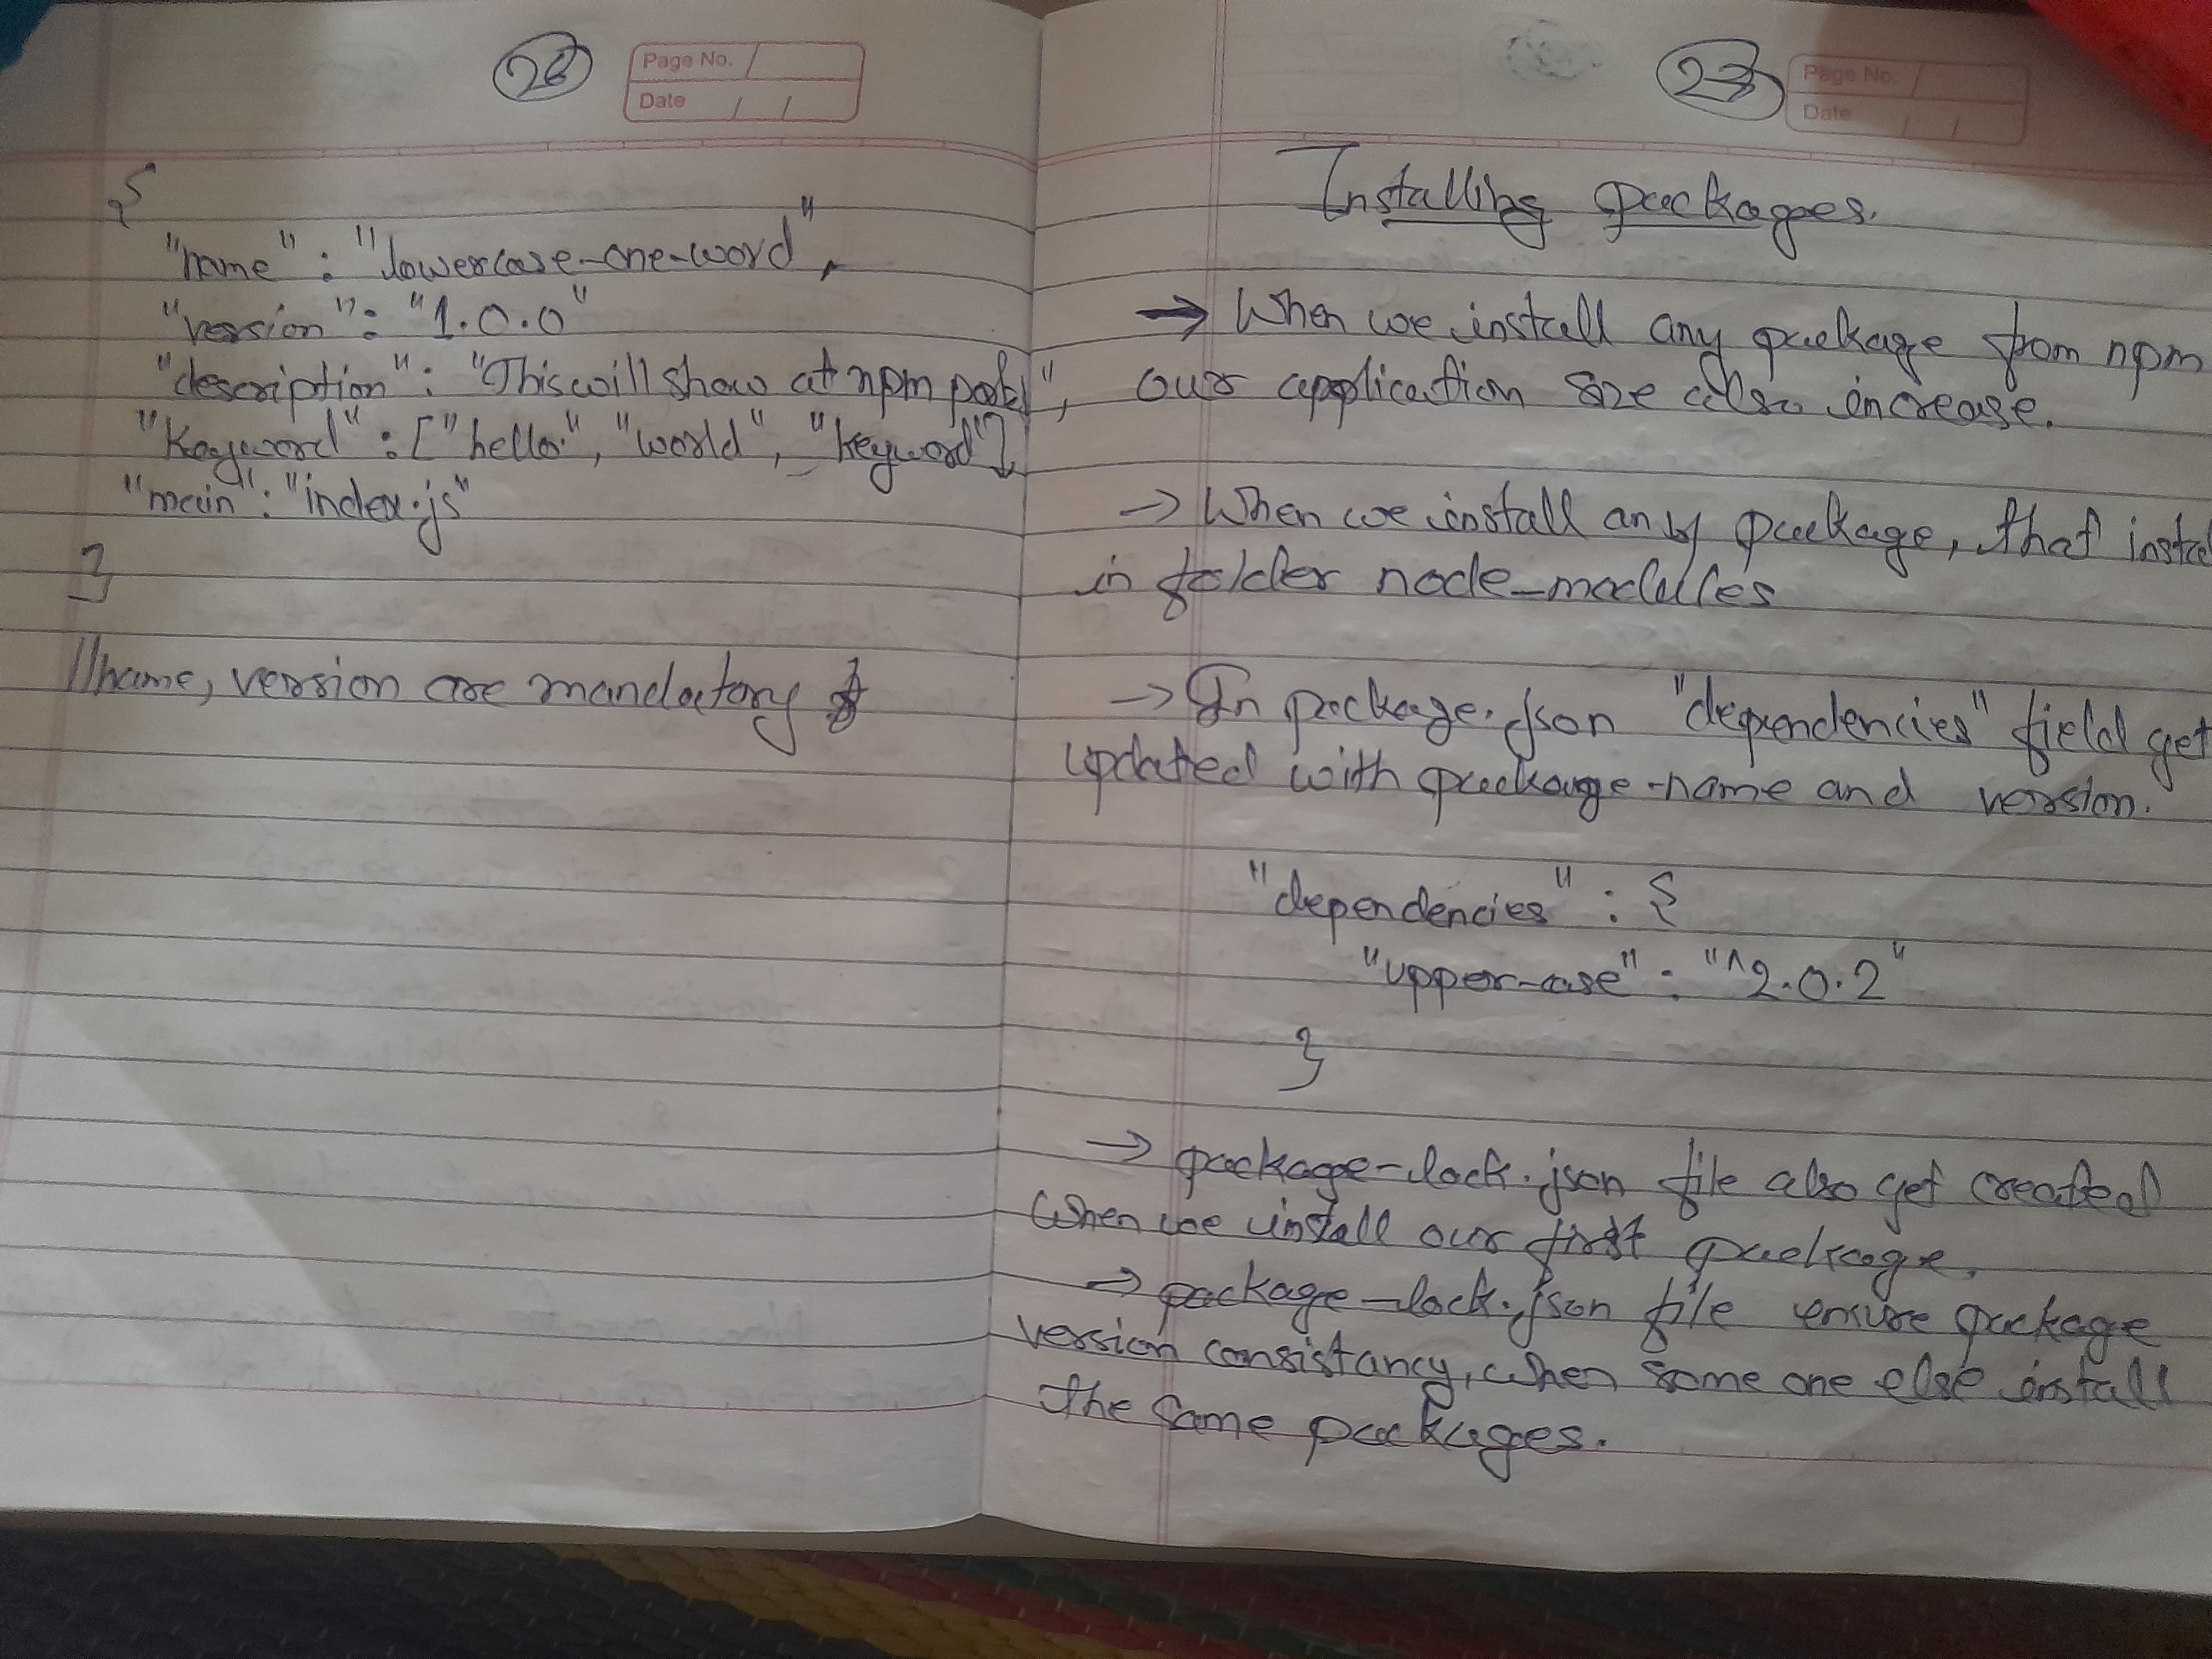 Page No.
Date / /
26
{
"name" : "lowercase-one-word",
"version" : "1.0.0"
"description" : "This will show at npm portal",
"Keyword" : ["hello", "world", - "keyword"],
"main": "index.js"
}
//name, version are mandatory
27
Page No.
Date / /
Installing packages.
→ When we install any package from npm
our application size also increase.
→ When we install any package, that install
in folder node-modules
→ In package.json "dependencies" field get
updated with package-name and version.
"dependencies" : {
"upper-case" : "^2.0.2"
}
→ package-lock.json file also get created
when we install our first package.
→ package-lock.json file ensure package
version consistancy, when some one else install
the same packages.